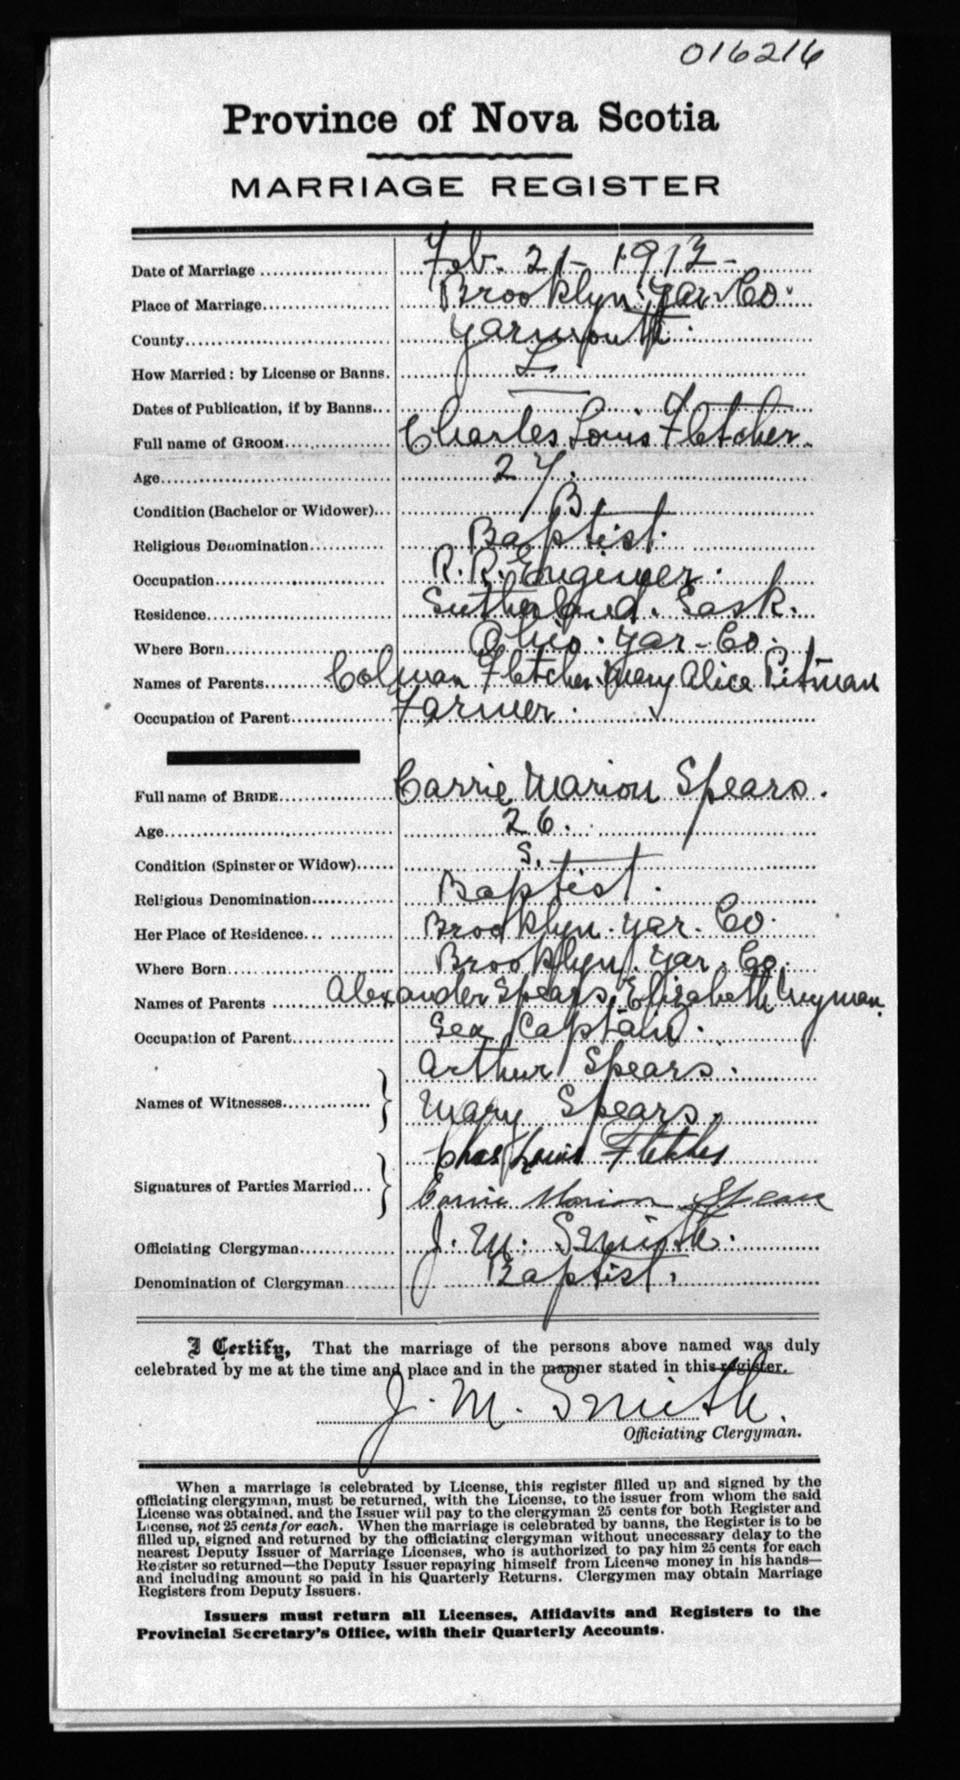 016216
Province of Nova Scotia
MARRIAGE REGISTER
Date of Marriage Feb. 21- 1912-
Place of Marriage Brooklyn Yar. Co.
County Yarmouth.
How Married: by License or Banns. L.
Dates of Publication, if by Banns —
Full name of GROOM Charles Louis Fletcher.
Age 27.
Condition (Bachelor or Widower) B.
Religious Denomination Baptist.
Occupation R. R. Engineer.
Residence Sutherland. Sask.
Where Born Ohio. Yar-Co.
Names of Parents Colman Fletcher. Mary Alice Pitman
Occupation of Parent Farmer.
Full name of BRIDE Carrie Marion Spears.
Age 26.
Condition (Spinster or Widow) S.
Religious Denomination Baptist.
Her Place of Residence Brooklyn. Yar. Co.
Where Born Brooklyn. Yar. Co.
Names of Parents Alexander Spears, Elizabeth Wyman.
Occupation of Parent Sea Captain.
Names of Witnesses Arthur Spears.
Mary Spears.
Signatures of Parties Married Chas Louis Fletcher
Carrie Marion Spears
Officiating Clergyman J. M. Smith.
Denomination of Clergyman Baptist.
I Certify, That the marriage of the persons above named was duly
celebrated by me at the time and place and in the manner stated in this register.
J. M. Smith.
Officiating Clergyman.
When a marriage is celebrated by License, this register filled up and signed by the
officiating clergyman, must be returned, with the License, to the issuer from whom the said
License was obtained, and the Issuer will pay to the clergyman 25 cents for both Register and
License, not 25 cents for each. When the marriage is celebrated by banns, the Register is to be
filled up, signed and returned by the officiating clergyman without unecessary delay to the
nearest Deputy Issuer of Marriage Licenses, who is authorized to pay him 25 cents for each
Register so returned—the Deputy Issuer repaying himself from License money in his hands—
and including amount so paid in his Quarterly Returns. Clergymen may obtain Marriage
Registers from Deputy Issuers.
Issuers must return all Licenses, Affidavits and Registers to the
Provincial Secretary's Office, with their Quarterly Accounts.